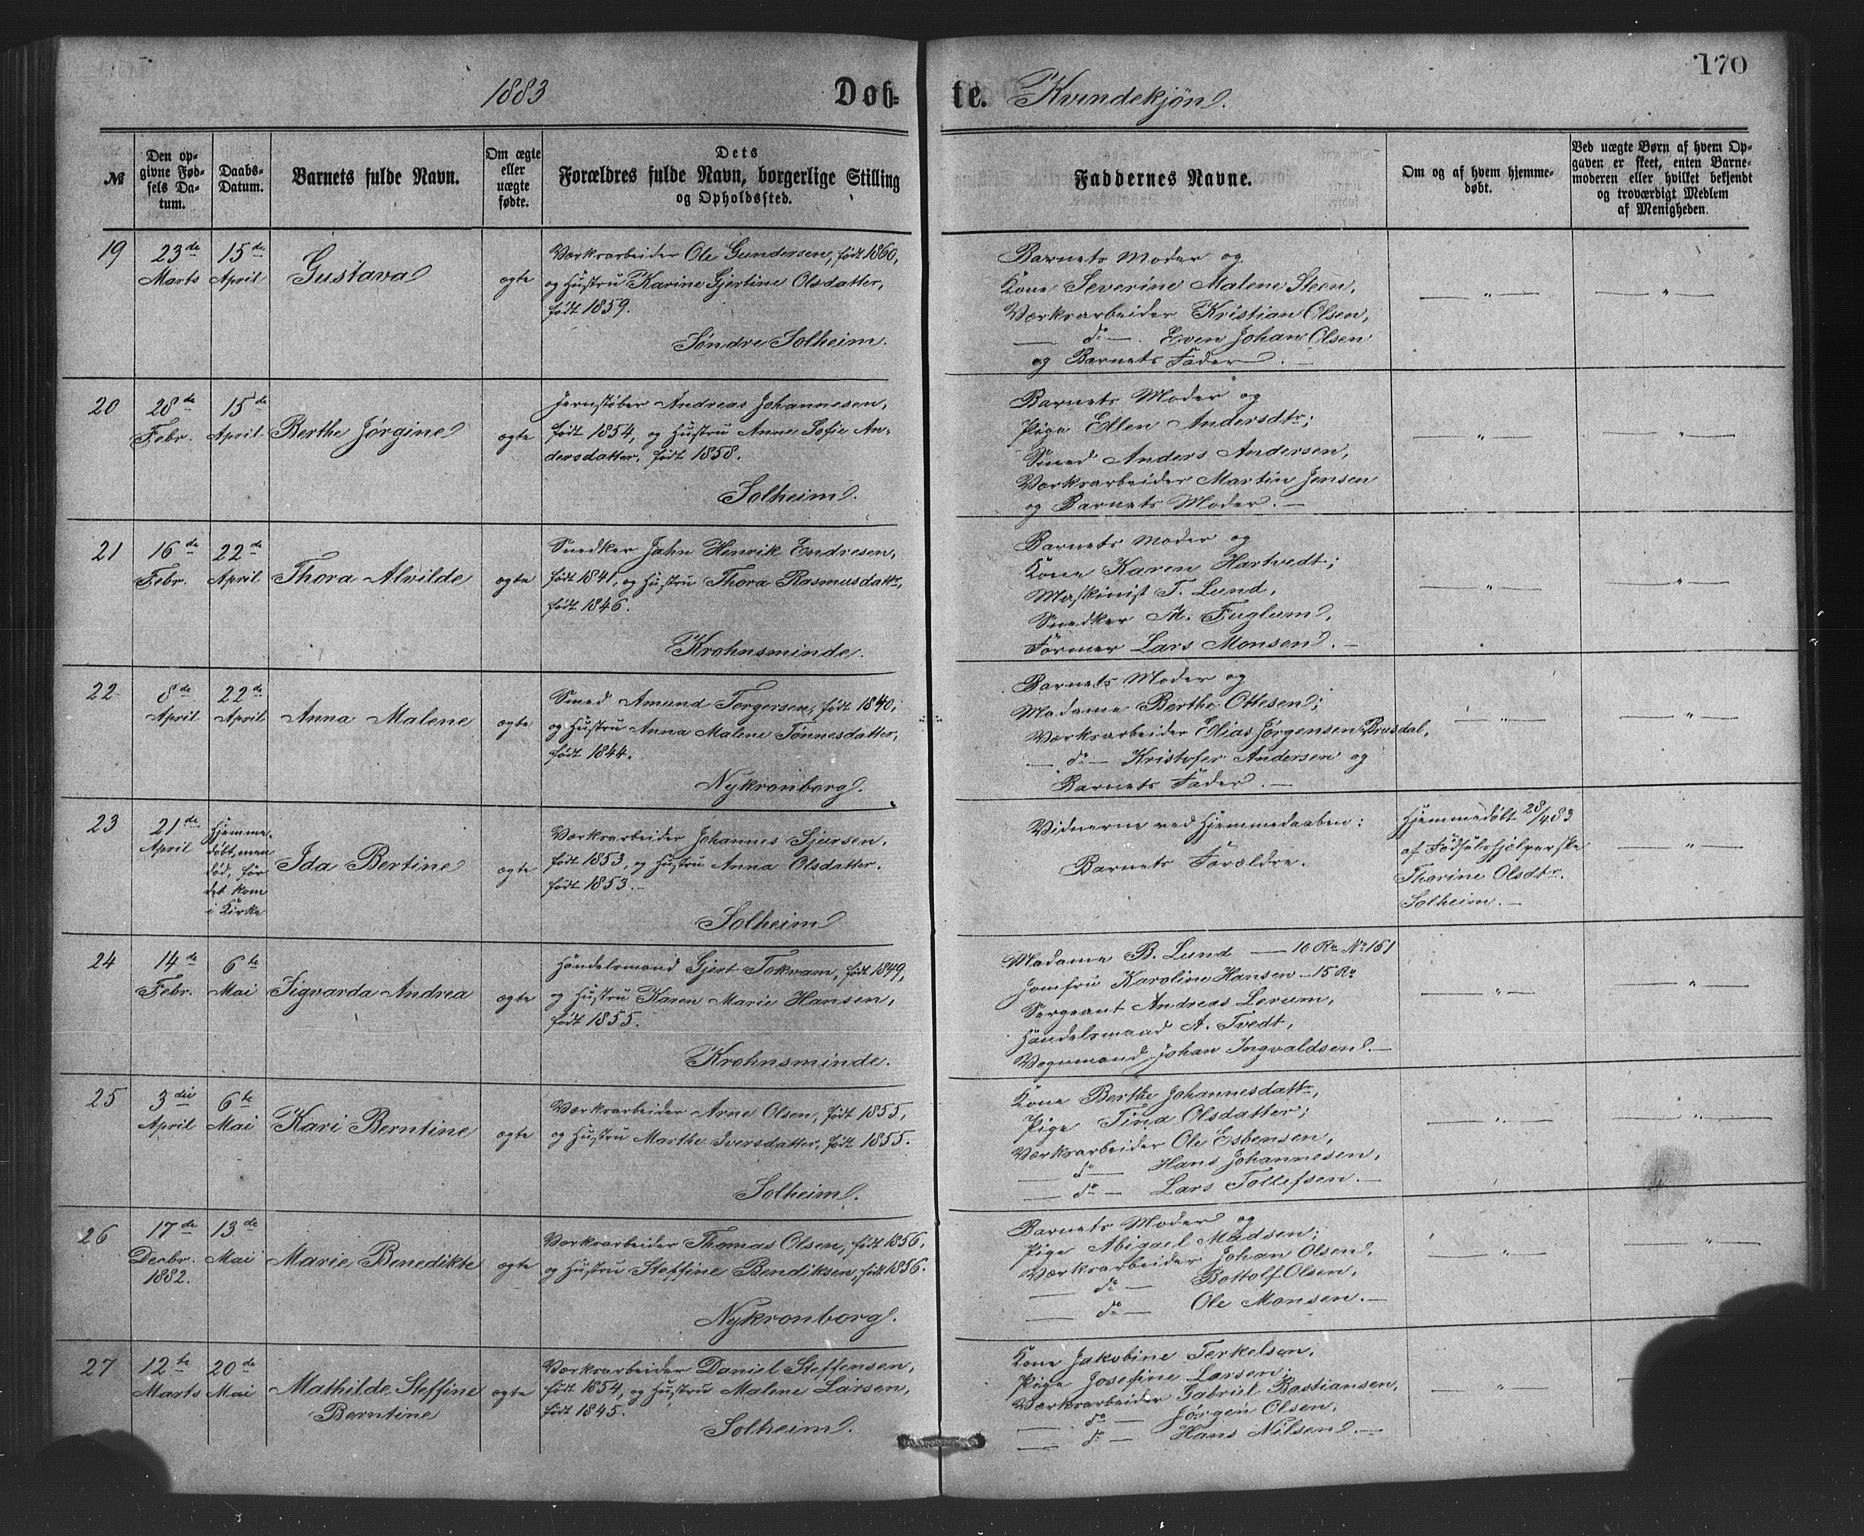 170
1883 Døb-te. Kvindekjøn.
№
Den op-
givne Fød-
sels Da-
tum.
Daabs-
Datum.
Barnets fulde Navn.
Om ægte
eller
uægte
fødte.
Dets
Forældres fulde Navn, borgerlige Stilling
og Opholdssted.
Faddernes Navne.
Om og af hvem hjemme-
døbt.
Ved uægte Børn af hvem Op-
gaven er skeet, enten Barne-
moderen eller hvilket bekjendt
og troværdigt Medlem
af Menigheden.
19
23de
Marts
15de
April
Gustava
ægte
Værksarbeider Ole Gundersen, født 1860,
og Hustru Karine Gjertine Olsdatter,
født 1859.
Søndre Solheim.
Barnets Moder og
Kone Severine Malene Steen,
Værksarbeider Kristian Olsen,
— do — Even Johan Olsen
og Barnets Fader. —
— „ —
— „ —
20
28de
Febr.
15de
April
Berthe Jørgine
ægte
Jernstøber Andreas Johannesen,
født 1854, og Hustru Anne Sofie An-
dersdatter, født 1858.
Solheim.
Barnets Moder og
Pige Ellen Andersdtr;
Smed Anders Andersen,
Værksarbeider Martin Jensen
og Barnets Moder. —
— „ —
— „ —
21
16de
Febr.
22de
April
Thora Alvilde
ægte
Snedker Jahn Henrik Endresen,
født 1841, og Hustru Thora Rasmusdattr,
født 1846.
Krohnsminde.
Barnets Moder og
Kone Karen Hartvedt;
Maskinist T. Lund,
Snedker M. Fuglum,
Former Lars Monsen. —
— „ —
— „ —
22
8de
April
22de
April
Anna Malene
ægte
Smed Amund Torgersen, født 1840,
og Hustru Anna Malene Tønnesdatter,
født 1844.
Nykronborg.
Barnets Moder og
Madame Berthe Ottesen;
Værksarbeider Elias Jørgensen Brusdal,
— do — Kristofer Andersen og
Barnets Fader. —
— „ —
— „ —
23
21de
April
Hjemme-
døbt, men
død, før
det kom
i Kirke
Ida Bertine
ægte
Værksarbeider Johannes Sjursen,
født 1853, og Hustru Anna Olsdatter,
født 1853. —
Solheim
Vidnerne ved Hjemmedaaben:
Barnets Forældre.
Hjemmedøbt 28/4 83
af Fødselshjælperske
Thorine Olsdtr.
Solheim. —
— „ —
24
14de
Febr.
6te
Mai
Sigvarda Andrea
ægte
Handelsmand Gjert Tokvam, født 1849,
og Hustru Karen Marie Hansen,
født 1855.
Krohnsminde.
Madame B. Lund — 10 Kr No 161
Jomfru Karoline Hansen — 15 Kr
Sergeant Andreas Lerum,
Handelsmand A. Tvedt,
Vognmand Johan Ingvaldsen. —
— „ —
— „ —
25
3die
April
6te
Mai
Kari Berntine
ægte
Værksarbeider Arne Olsen, født 1855,
og Hustru Marthe Iversdatter, født 1855.
Solheim.
Kone Berthe Johannesdattr,
Pige Tina Olsdatter;
Værksarbeider Ole Esbensen,
— do — Hans Johannesen,
— do — Lars Tollefsen. —
— „ —
— „ —
26
17de
Decbr.
1882.
13de
Mai
Marie Benedikte
ægte
Værksarbeider Thomas Olsen, født 1856,
og Hustru Steffine Bendiksen, født 1856.
Nykronborg.
Barnets Moder og
Pige Abigael Madsen;
Værksarbeider Johan Olsen,
— do — Bottolf Olsen,
— do — Ole Monsen. —
— „ —
— „ —
27
12te
Marts
20de
Mai
Mathilde Steffine
Berntine
ægte
Værksarbeider Daniel Steffensen,
født 1854, og Hustru Malene Larsen,
født 1845.
Solheim.
Kone Jakobine Terkelsen,
Pige Josefine Larsen;
Værksarbeider Gabriel Bastiansen,
— do — Jørgen Olsen,
— do — Hans Nilsen. —
— „ —
— „ —